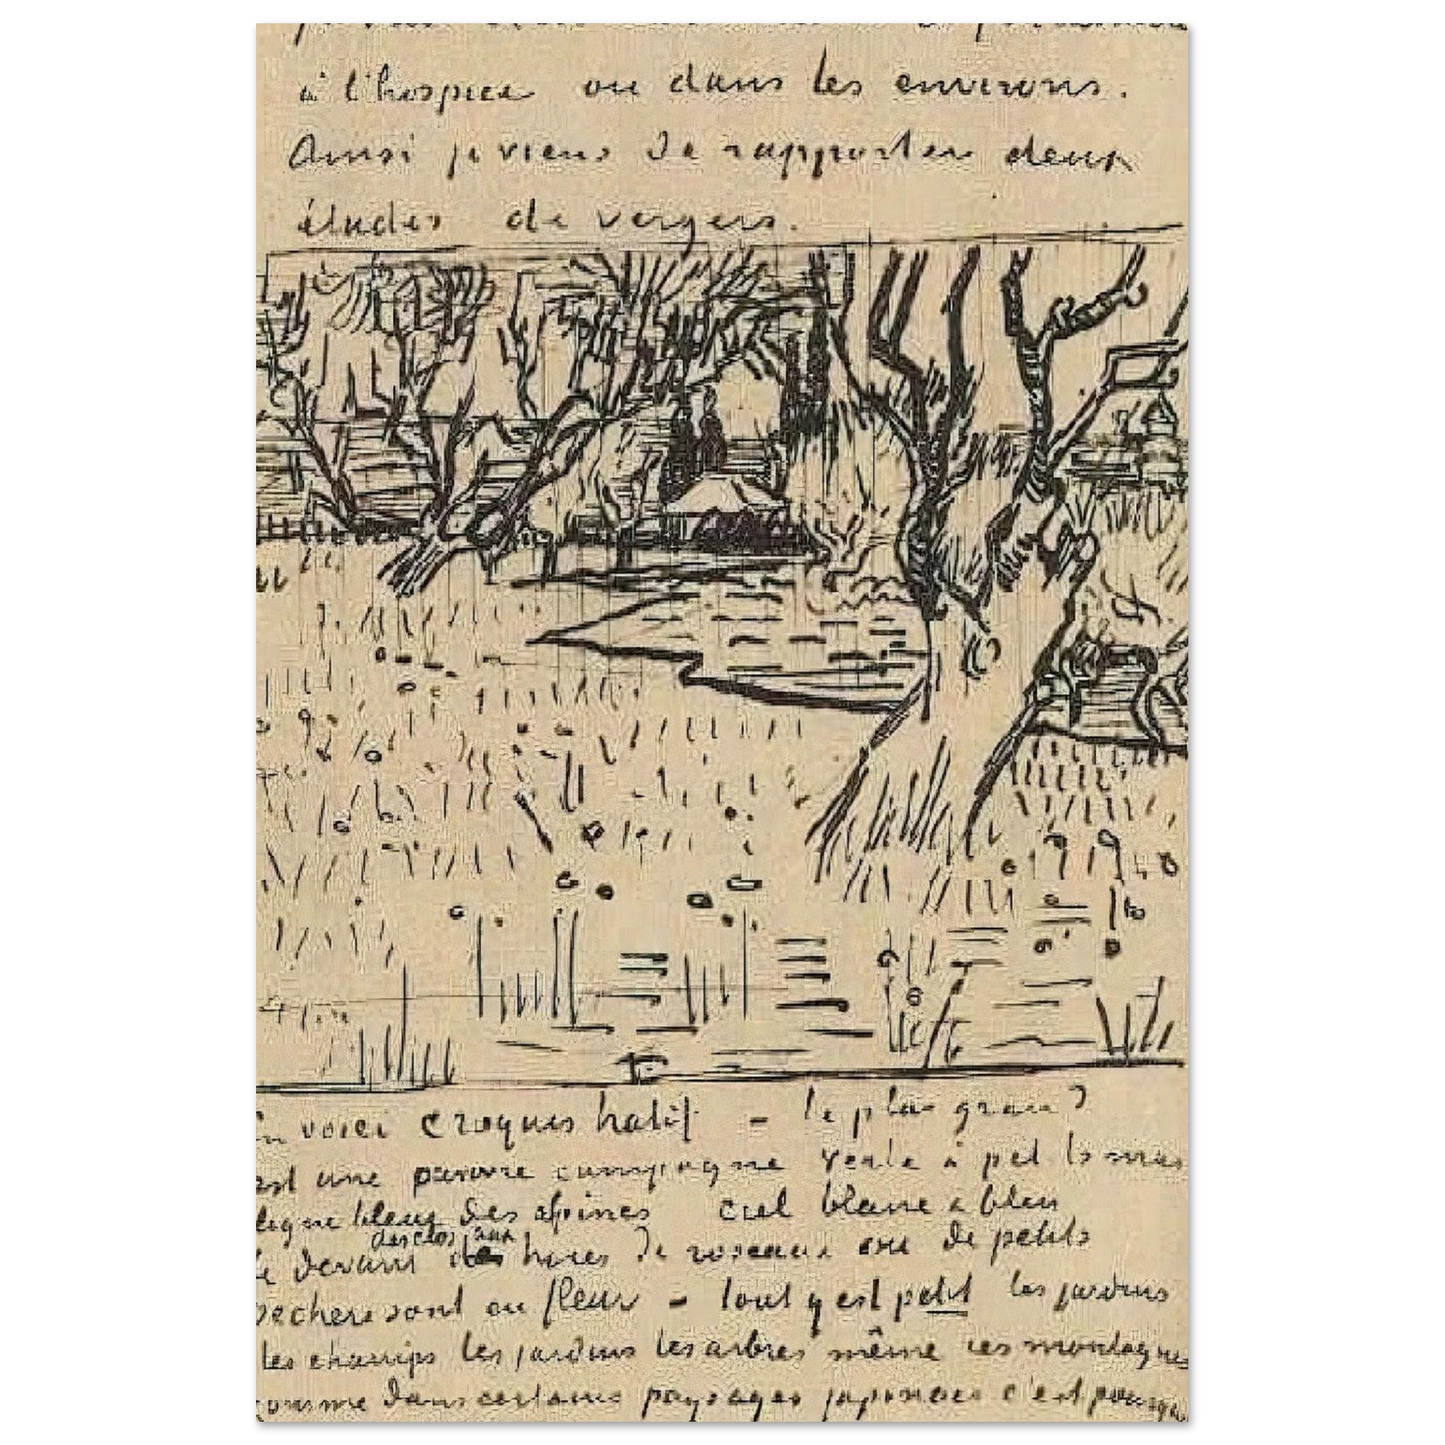 à l'hospice ou dans les environs.
Ainsi je viens de rapporter deux
études de vergers.
En voici croquis hatif – le plus grand
est une pauvre campagne verte à petits mas
ligne bleue des alpines ciel blanc & bleu
le devant des clos aux haies de roseaux où de petits
pechers sont en fleur – tout y est petit les jardins
les champs les jardins les arbres même ces montagnes
comme dans certains paysages japonais c'est pourquoi